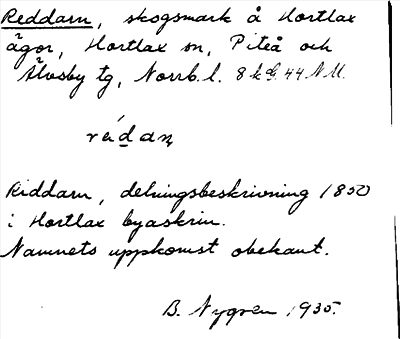 Reddarn, skogsmark å Hortlax
ägor, Hortlax sn, Piteå och
Älvsby tg, Norrb. l. 8 k G. 44 N.U.
rédan
Riddarn, delningsbeskrivning 1850
i Hortlax byaskrin.
Namnets uppkomst obekant.
B. Nygren 1935.